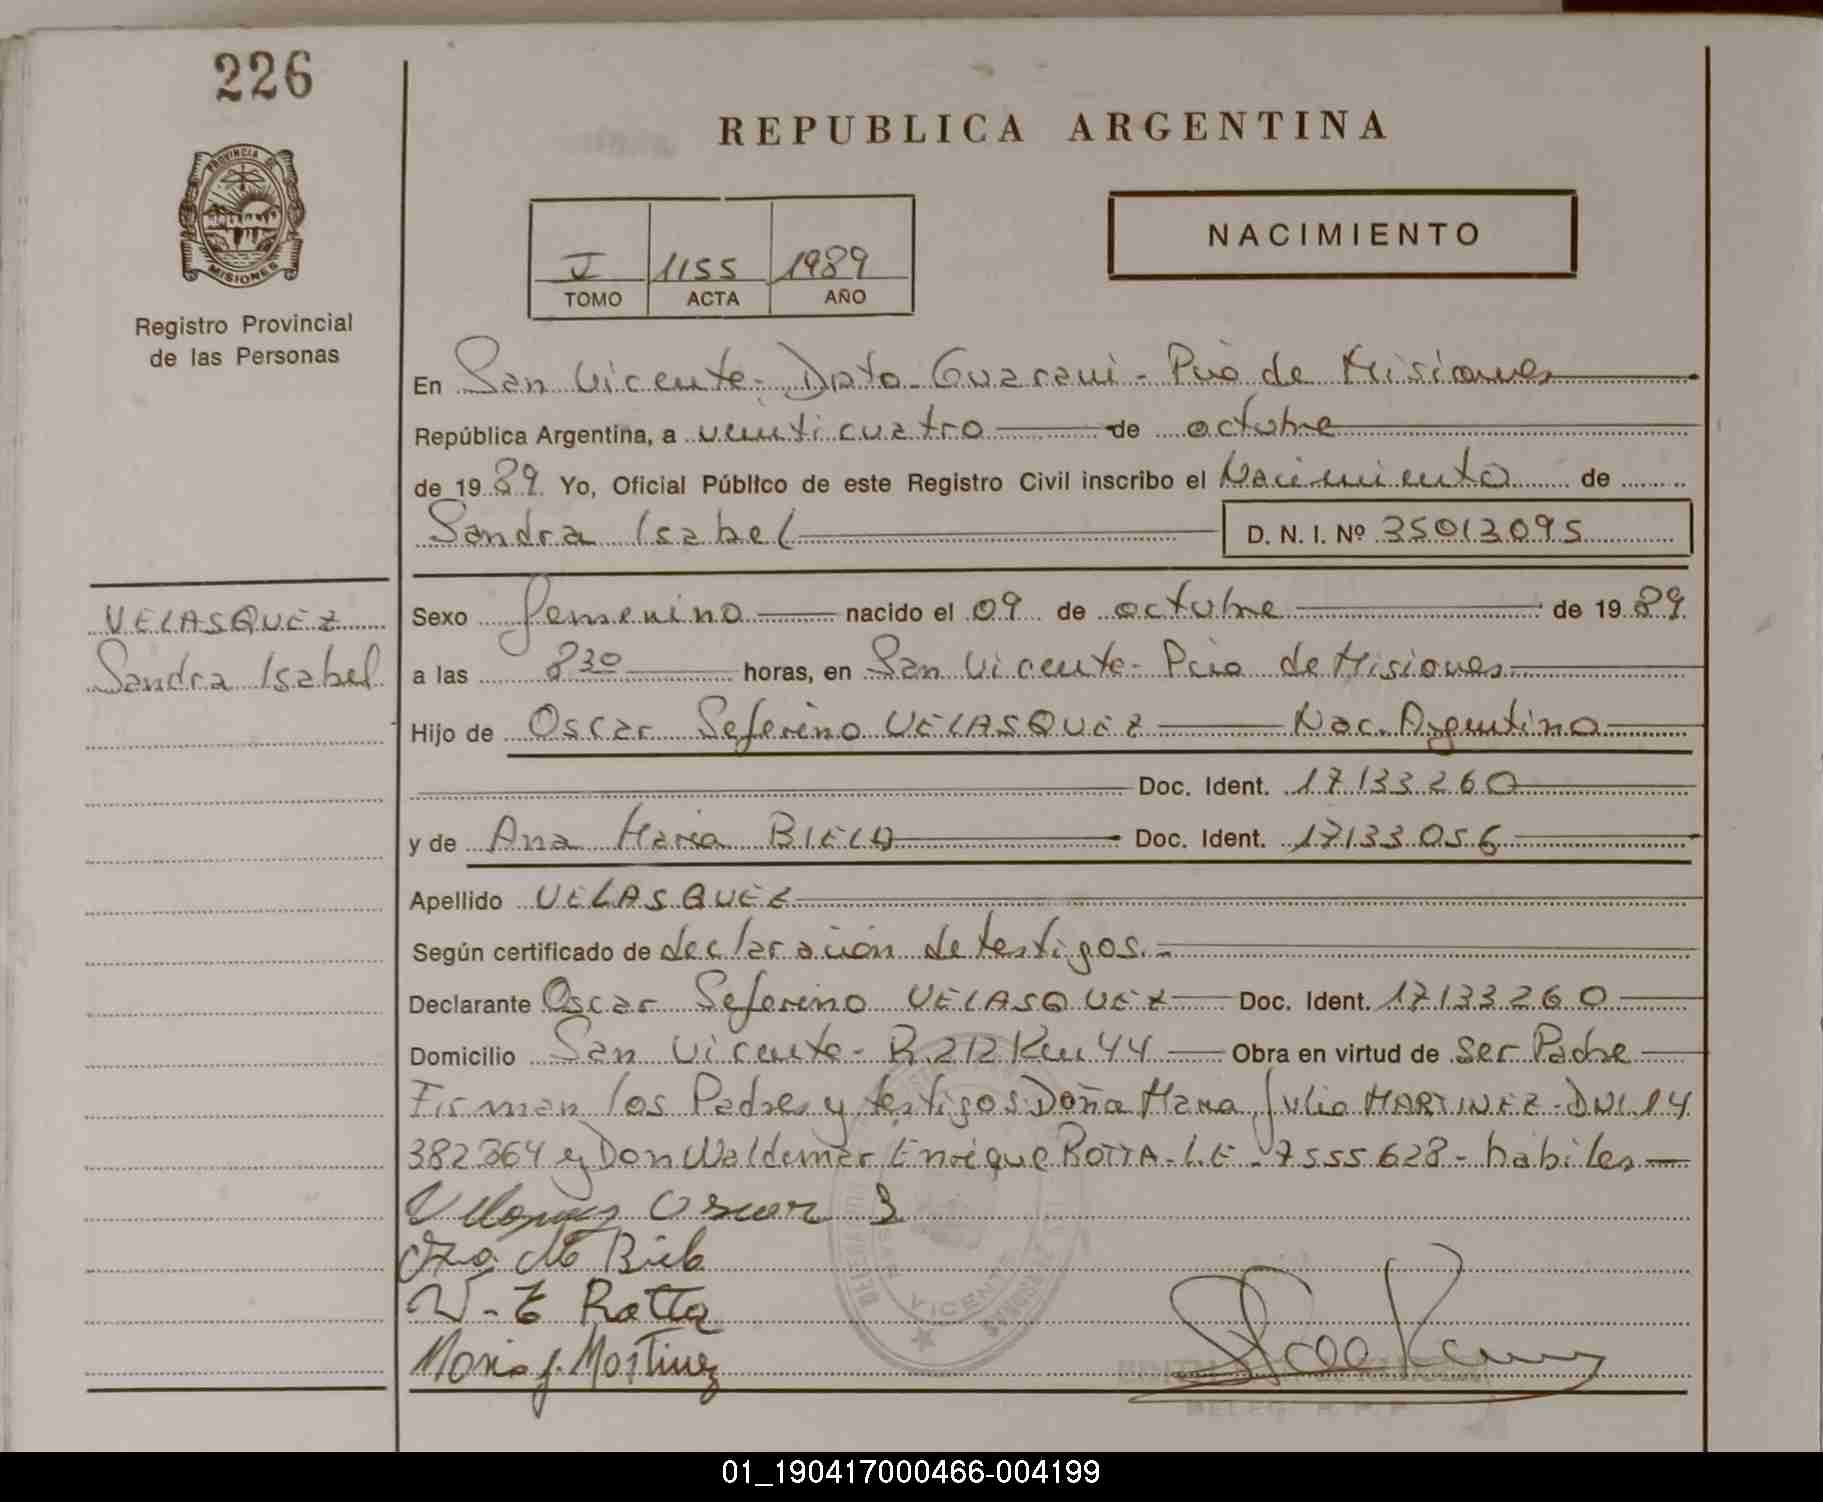 226
REPUBLICA ARGENTINA
PROVINCIA DE
MISIONES
Registro Provincial
de las Personas
I 1155 1989
TOMO ACTA AÑO
NACIMIENTO
En San Vicente - Dpto. Guarani - Pcia de Misiones
República Argentina, a veinticuatro de octubre
de 1989. Yo, Oficial Público de este Registro Civil inscribo el Nacimiento de
Sandra Isabel D. N. I. Nº 35013095
VELASQUEZ
Sandra Isabel
Sexo femenino nacido el 09 de octubre de 1989.
a las 8 30 horas, en San Vicente - Pcia de Misiones
Hijo de Oscar Seferino VELASQUEZ Nac. Argentino
Doc. Ident. 17133260
y de Ana Maria BIELA Doc. Ident. 17133056
Apellido VELASQUEZ
Según certificado de declaración de testigos.-
Declarante Oscar Seferino VELASQUEZ Doc. Ident. 17133260
Domicilio San Vicente - R. 212 Km 44 Obra en virtud de Ser Padre
Firman los Padres y testigos Doña Maria Julia MARTINEZ - DNI. 14
382364 y Don Waldemar Enrique ROTTA - L.E - 7555628 - habiles
Oscar S
Ana Ma Biela
W - E Rotta
Maria J. Martinez
VICENTE
01_190417000466-004199